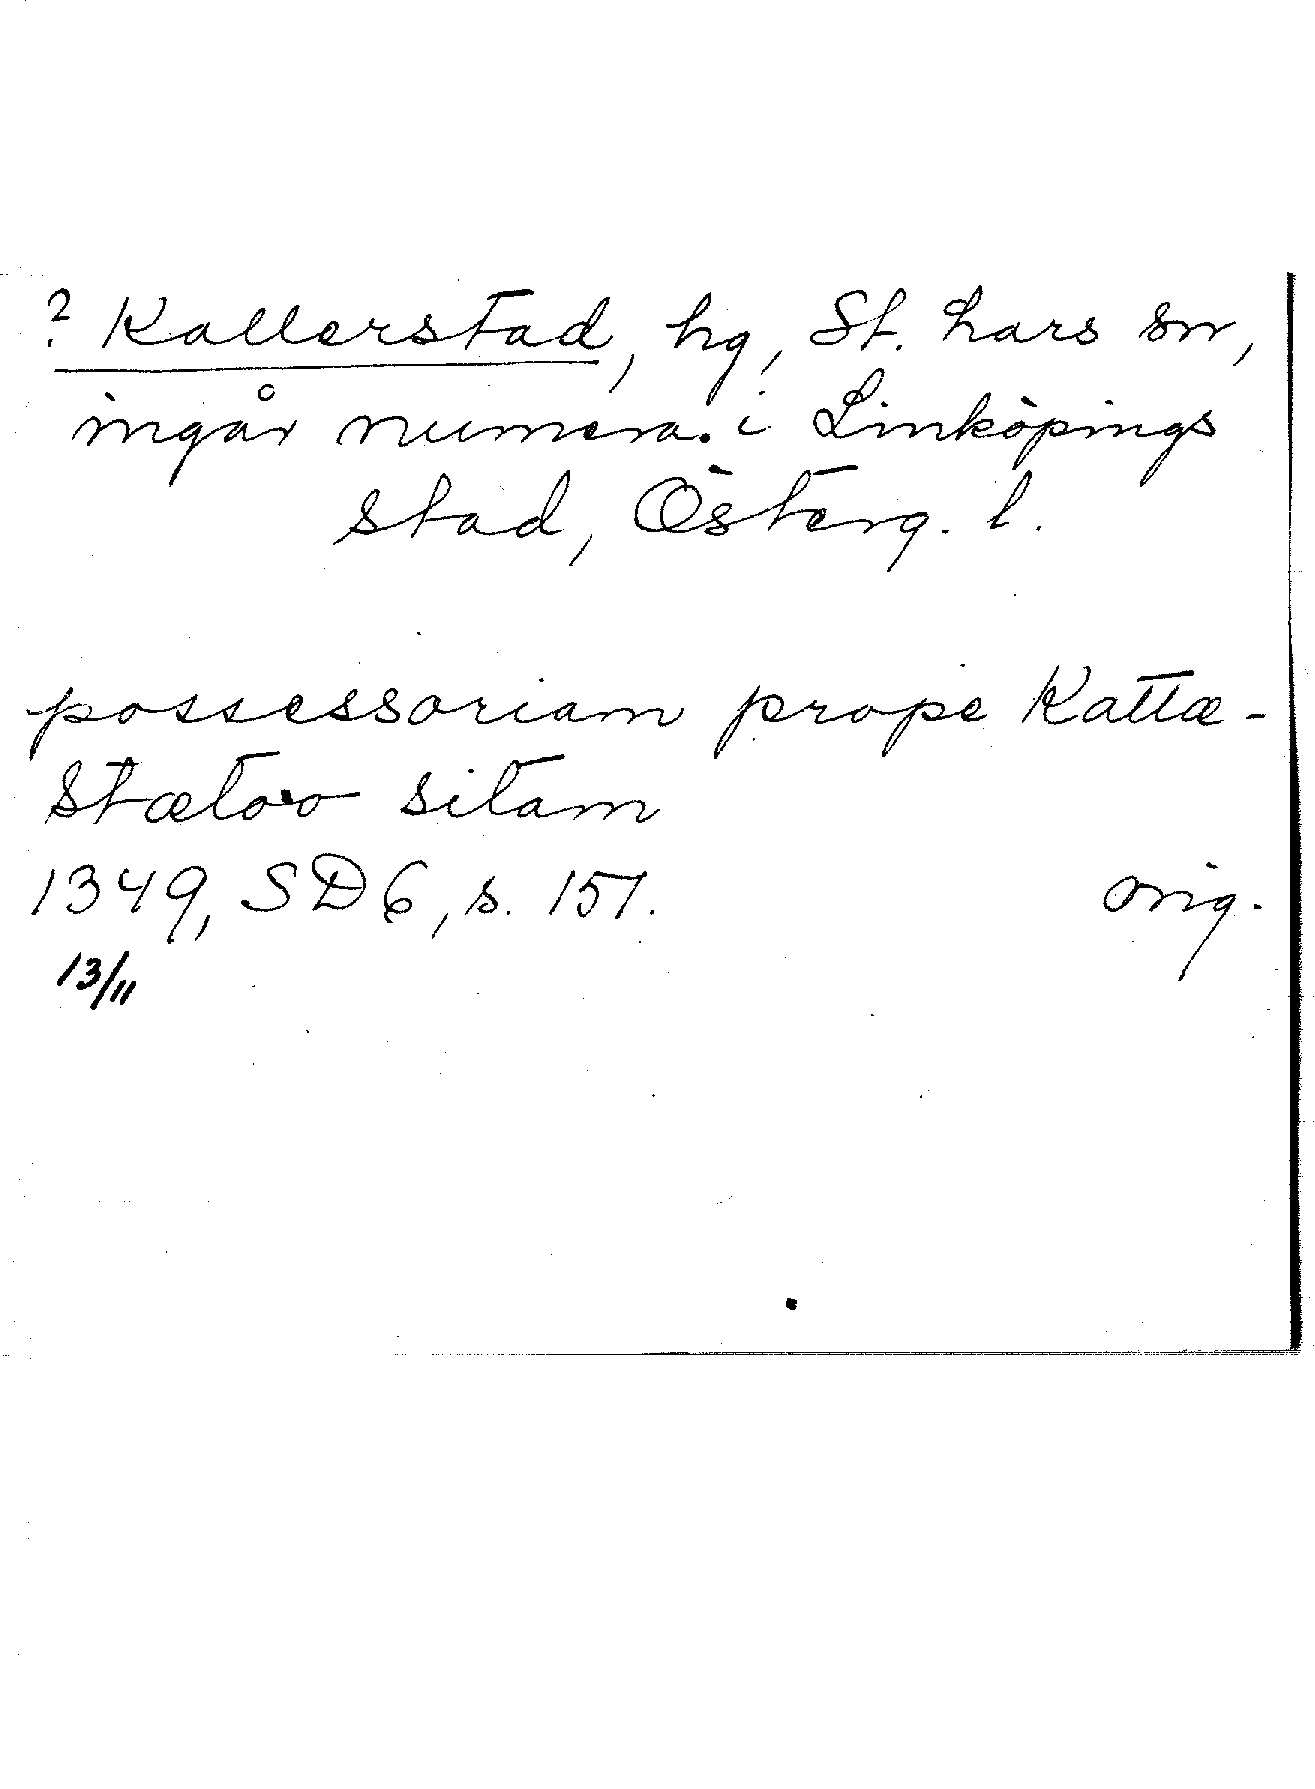 ? Kallerstad, hg, St. Lars sn,
ingår numera i Linköpings
stad, Österg. l.
possessoriam prope Kattæ-
stætoo sitam
1349, SD 6, s. 151. orig.
13/11